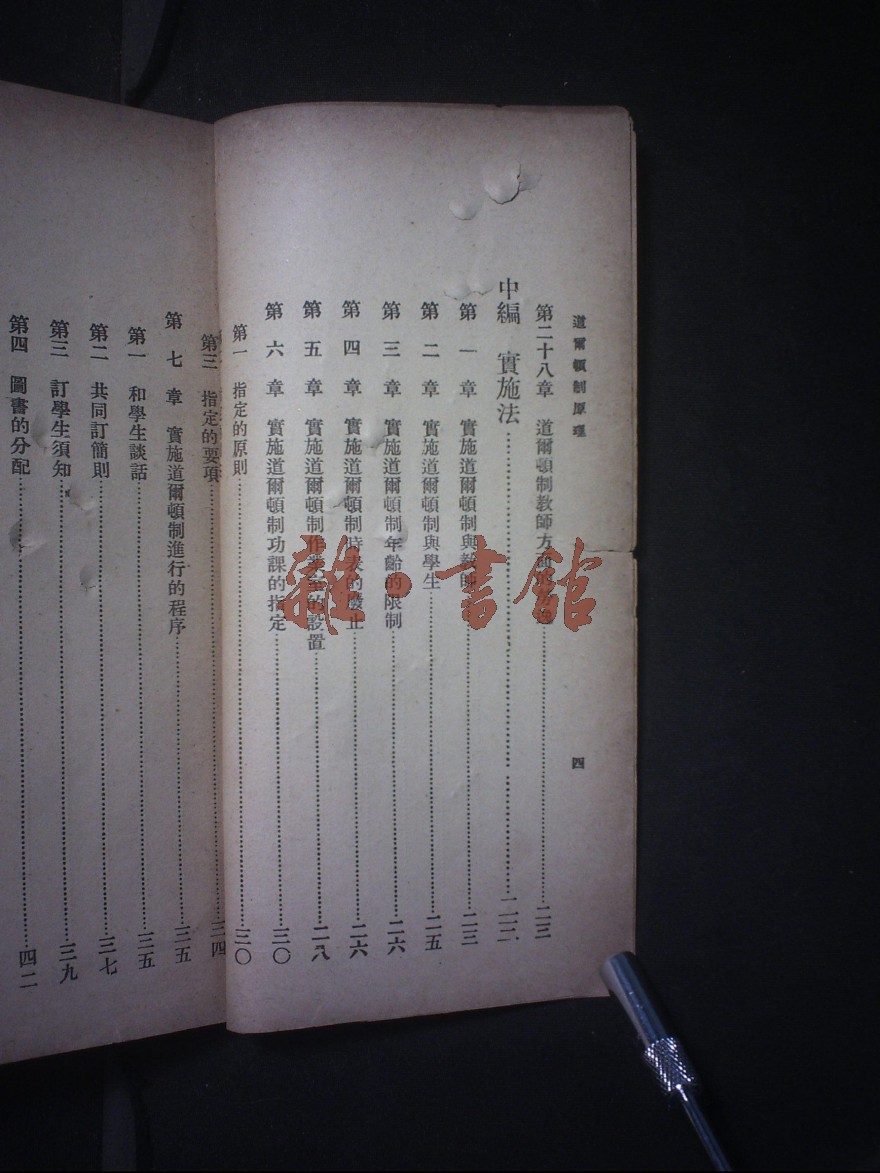 道爾頓制原理
四
第二十八章 道爾頓制教師方面的 二三
中編 實施法 二三
第一章 實施道爾頓制與教師 二三
第二章 實施道爾頓制與學生 二五
第三章 實施道爾頓制年齡的限制 二六
第四章 實施道爾頓制時表的廢止 二六
第五章 實施道爾頓制作業室的設置 二八
第六章 實施道爾頓制功課的指定 三〇
第一 指定的原則 三〇
第三 指定的要項 三四
第七章 實施道爾頓制進行的程序 三五
第一 和學生談話 三五
第二 共同訂簡則 三七
第三 訂學生須知 三九
第四 圖書的分配 四二
雜·書館